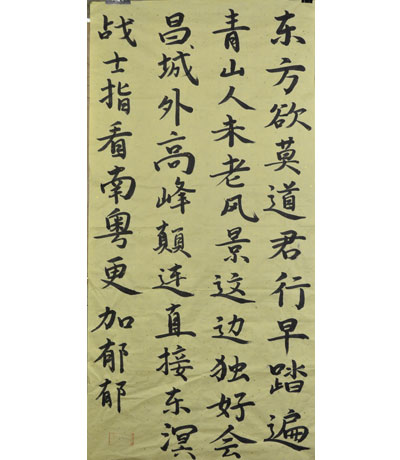 东方欲莫道君行早踏遍
青山人未老风景这边独好会
昌城外高峰颠连直接东溟
战士指看南粤更加郁郁